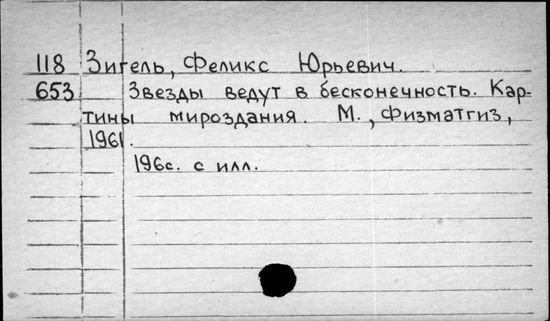 118 Зигель, Феликс Юрьевич.
653 Звезды ведут в бесконечность. Кар-
тины мироздания. М., Физматгиз,
1961.
196с. с илл.